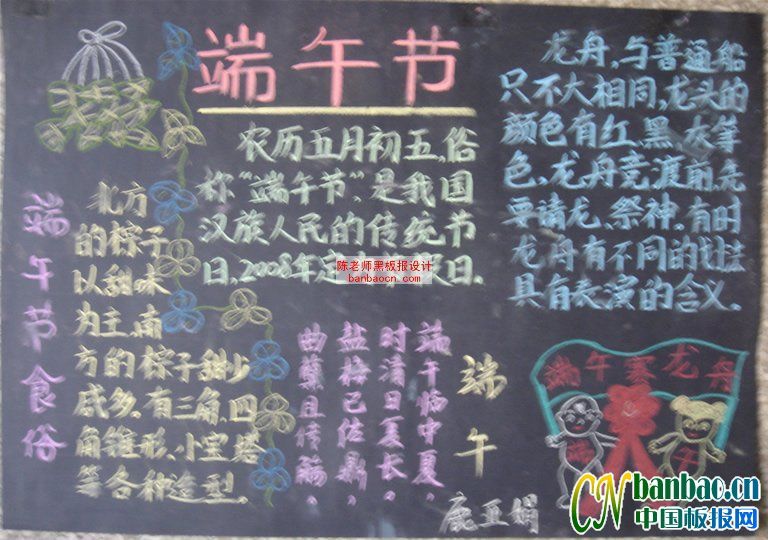 端午节
农历五月初五,俗
称“端午节”,是我国
汉族人民的传统节
日,2008年定
假日.
陈老师黑板报设计
banbaocn.com
龙舟,与普通船
只不大相同,龙头的
颜色有红、黑、灰等
色,龙舟竞渡前,先
要请龙、祭神.有时
龙舟有不同的划法
具有表演的含义.
端午节食俗
北方
的粽子
以甜味
为主,南
方的粽子甜少
咸多.有三角、四
角锥形、小宝塔
等各种造型.
端午
端午恰中夏,
时清日夏长.
盐梅已佐鼎,
曲蘖且传觞.
端午赛龙舟
鹿亚娟
CNbanbao.cn
中国板报网